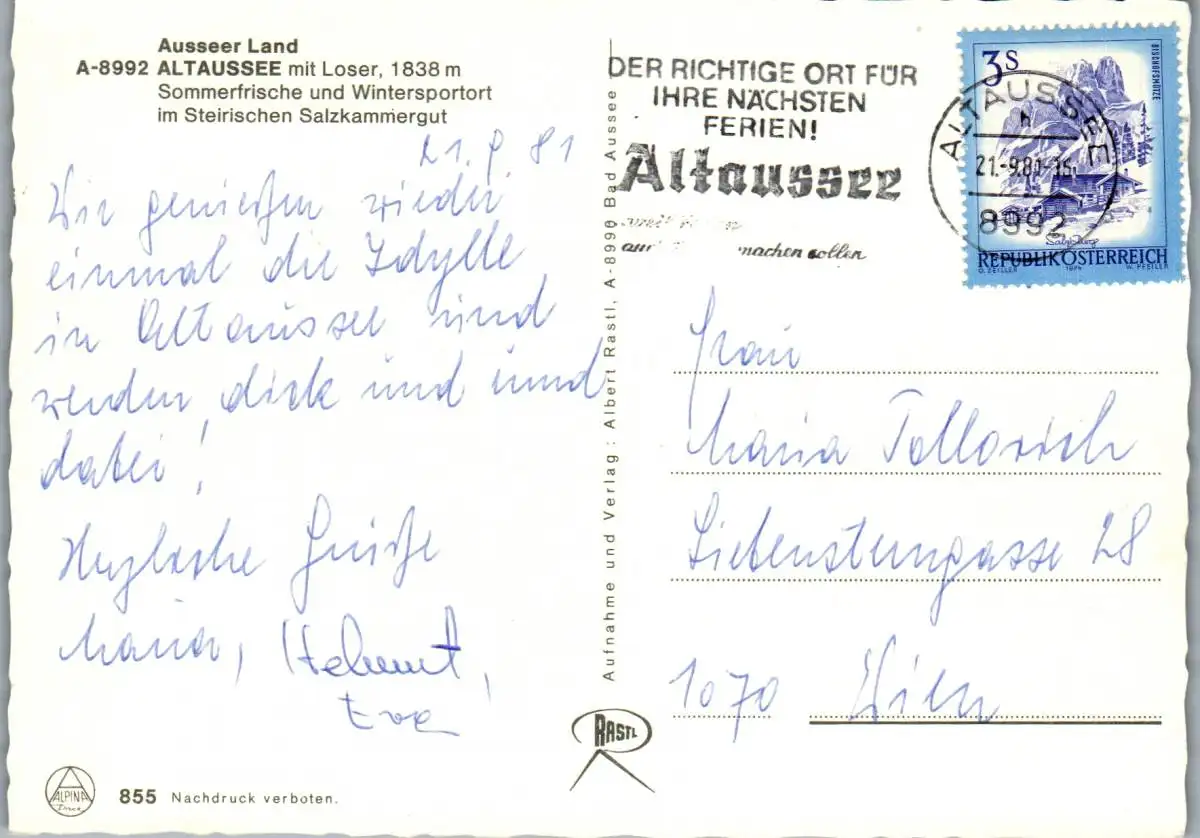 Ausseer Land
A-8992 ALTAUSSEE mit Loser, 1838 m
Sommerfrische und Wintersportort
im Steirischen Salzkammergut
21. 9 81
Wir genießen wieder
einmal die Idylle
in Altaussee und
werden dick und rund
dabei!
Herzliche Grüße
Maria, Helmut,
Eva
855 Nachdruck verboten.
ALPINA
Druck
Aufnahme und Verlag: Albert Rastl, A-8990 Bad Aussee
RASTL
DER RICHTIGE ORT FÜR
IHRE NÄCHSTEN
FERIEN!
Altaussee
machen sollen
ALTAUSSEE
21.-9.81-15
8992
3S
BISCHOFSMÜTZE
Salzburg
REPUBLIK ÖSTERREICH
O. ZEILLER 1974 W. PFEILER
Frau
Maria
28
1070 Wien